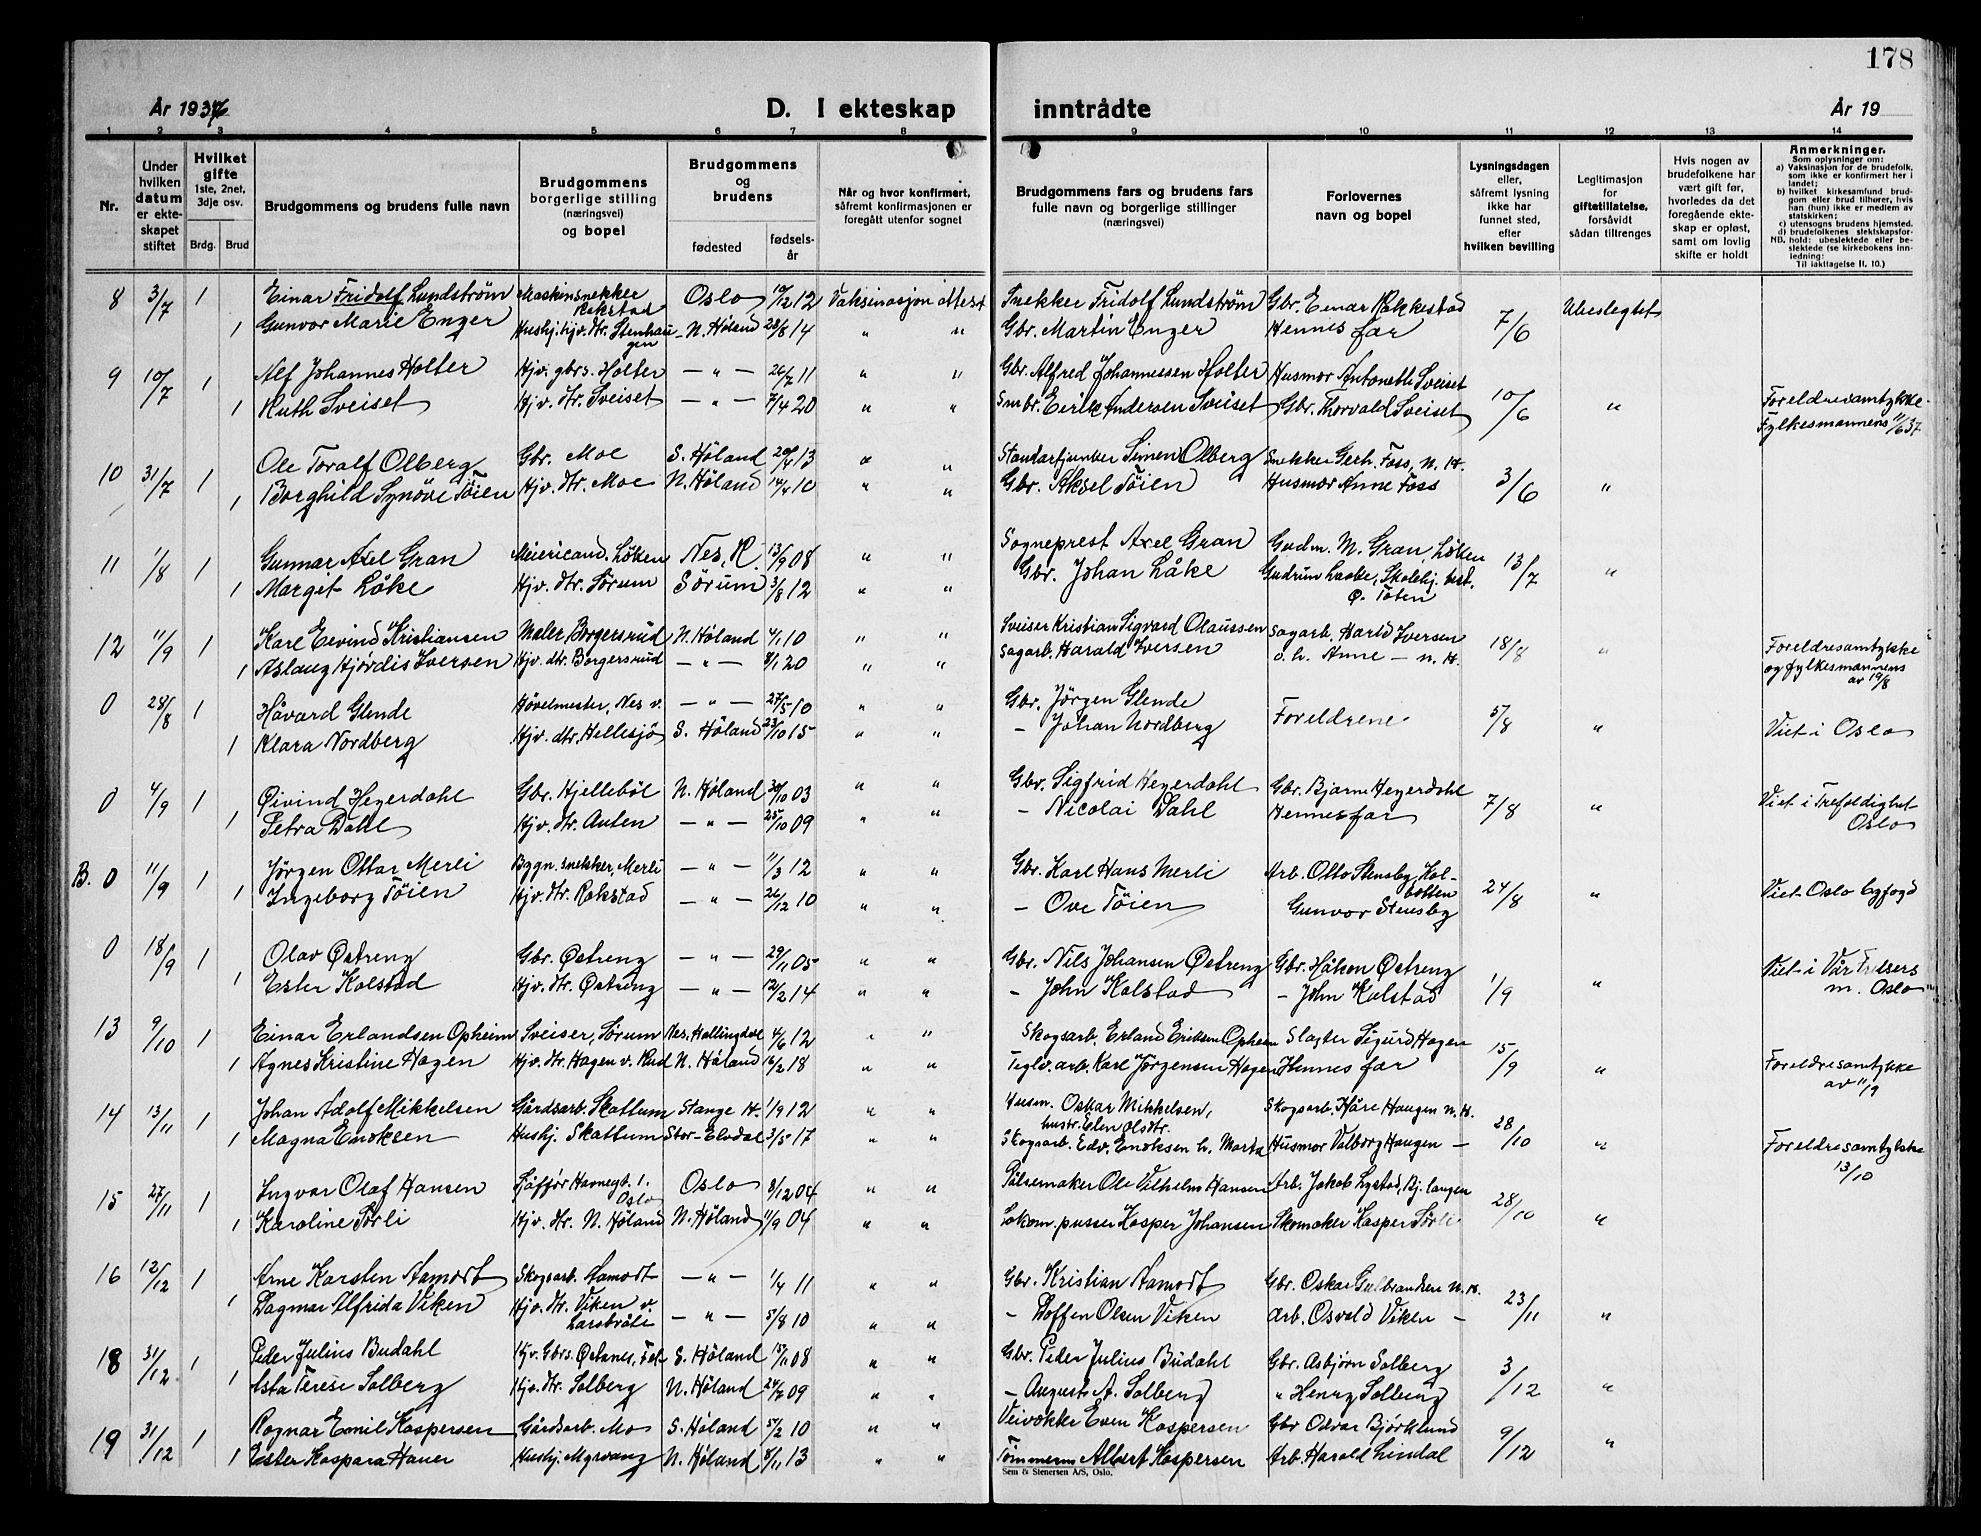 178
År 1937
D. I ekteskap inntrådte
År 19
1 2 3 4 5 6 7 8 9 10 11 12 13 14
Nr.
Under hvilken datum er ekteskapet stiftet
Hvilket gifte 1ste, 2net, 3dje osv.
Brdg. Brud
Brudgommens og brudens fulle navn
Brudgommens borgerlige stilling (næringsvei) og bopel
Brudgommens og brudens
fødested
fødselsår
Når og hvor konfirmert, såfremt konfirmasjonen er foregått utenfor sognet
Brudgommens fars og brudens fars fulle navn og borgerlige stillinger (næringsvei)
Forlovernes navn og bopel
Lysningsdagen eller, såfremt lysning ikke har funnet sted, efter hvilken bevilling
Legitimasjon for giftetillatelse, forsåvidt sådan tiltrenges
Hvis nogen av brudefolkene har vært gift før, hvorledes da det foregående ekteskap er opløst, samt om lovlig skifte er holdt
Anmerkninger.
Som oplysninger om:
a) Vaksinasjon for de brudefolk, som ikke er konfirmert her i landet;
b) hvilket kirkesamfund brudgom eller brud tilhører, hvis han (hun) ikke er medlem av statskirken;
c) utensogns brudens hjemsted.
d) brudefolkenes slektskapsforhold: ubeslektede eller beslektede (se kirkebokens innledning:
NB. Til iakttagelse II, 10.)
8 3/7 1 Einar Fridolf Lundstrøm Maskinsnekker Rakstad Oslo 19/12 12 Vaksinasjon attest Snekker Fridolf Lundstrøm Gbr. Einar Rakkestad 7/6 Ubeslegtet
1 Gunvor Marie Enger Hushj. hjv. dtr. Stenhaugen N. Høland 28/8 14 " " Gbr. Martin Enger Hennes far
9 10/7 1 Alf Johannes Holter Hjv. gbrs. Holter — " — 26/7 11 " " Gbr. Alfred Johannessen Holter Husmor Antoneth Sveiset 10/6 " Foreldresamtykke
1 Ruth Sveiset Hjv. dtr. Sveiset — " — 7/4 20 " " Smbr. Eirik Andersen Sveiset Gbr. Thorvald Sveiset Fylkesmannens 11/6 37
10 31/7 1 Ole Toralf Olberg Gbr. Moe S. Høland 20/4 13 " " Standarfjunker Simen Olberg Snekker Gerh. Foss, N. H. 3/6 "
1 Borghild Synøve Tøien Hjv. dtr. Moe N. Høland 14/4 10 " " Gbr. Aksel Tøien Husmor Anne Foss
11 1/8 1 Gunnar Axel Gran Meiericand. Løken Nes, R. 13/9 08 " " Sogneprest Axel Gran Gudm. M. Gran, Løken 13/7 "
1 Margit Låke Hjv. dtr. Sørum Sørum 3/8 12 " " Gbr. Johan Låke Gudrun Laake, Skolehj. best. Ø. Toten
12 11/9 1 Karl Eivind Kristiansen Maler Borgersrud N. Høland 4/1 10 " " Sveiser Kristian Sigvard Olaussen Sagarb. Harld Iversen 18/8 " Foreldresamtykke
1 Aslaug Hjørdis Iversen Hjv. dtr. Borgersrud — " — 8/1 20 " " Sagarb. Harald Iversen o. h. Anne — N. H. og fylkesmannens av 19/8
0 28/8 1 Håvard Glende Høvelmester, Nes v. — " — 27/5 10 " " Gbr. Jørgen Glende Foreldrene 5/8 " Viet i Oslo
1 Klara Nordberg Hjv. dtr. Hellesjø S. Høland 23/10 15 " " — Johan Nordberg
0 4/9 1 Øivind Heyerdahl Gbr. Hjellebøl N. Høland 30/10 03 " " Gbr. Sigfrid Heyerdahl Gbr. Bjarne Heyerdahl 7/8 " Viet i Trefoldighet
1 Petra Dahl Hjv. dtr. Auten — " — 25/10 09 " " — Nicolai Dahl Hennes far Oslo
B. 0 11/9 1 Jørgen Ottar Merli Bygn. snekker, Merli — " — 11/3 12 " " Gbr. Karl Hans Merli Arb. Otto Stensby, Kolbotten 24/8 " Viet Oslo byfogd
1 Ingeborg Tøien Hjv. dtr. Rakstad — " — 26/12 10 " " — Ove Tøien Gunvor Stensby
0 18/9 1 Olav Østreng Gbr. Østreng — " — 29/11 05 " " Gbr. Nils Johansen Østreng Gbr. Håkon Østreng 1/9 " Viet i Vår Frelsers
1 Ester Kolstad Hjv. dtr. Østreng — " — 12/2 14 " " — John Kolstad — John Kolstad m. Oslo
13 9/10 1 Einar Erlandsen Opheim Sveiser, Sørum Nes, Hallingdal 4/6 12 " " Skogsarb. Erland Eriksen Opheim Slagter Sigurd Hagen 15/9 " Foreldresamtykke
1 Agnes Kristine Hagen Hjv. dtr. Hagen v. Rud N. Høland 16/2 18 " " Teglv. arb. Karl Jørgensen Hagen Hennes far av 11/9
14 13/11 1 Johan Adolf Mikkelsen Gårdsarb. Skattum Stange H. 1/9 12 " " Husm. Oskar Mikkelsen, hustr. Elen Olsdtr. Skogsarb. Kåre Haugen N. H. 28/10 " Foreldresamtykke
1 Magna Enoksen Hushj. Skattum Stor-Elvdal 3/5 17 " " Skogsarb. Edv. Enoksen h. Marta Husmor Valborg Haugen — 13/10
15 27/11 1 Ingvar Olaf Hansen Sjåffør Havnegt. 1. Oslo Oslo 8/12 04 " " Pølsemaker Ole Vilhelm Hansen Arb. Jakob Lystad, Bj. langen 28/10 "
1 Karoline Sørli Hjv. dtr. N. Høland N. Høland 11/9 04 " " Lokom. pusser Kasper Johansen Skomaker Kasper Sørli
16 12/12 1 Arne Karsten Aamodt Skogsarb. Aamodt — " — 1/4 11 " " Gbr. Kristian Aamodt Gbr. Oskar Gulbrandsen N. H. 23/11 "
1 Dagmar Alfrida Viken Hjv. dtr. Viken v. Larsbråti — " — 5/8 10 " " — Toffen Olsen Viken Arb. Osvald Viken —
18 31/12 1 Peder Julius Budahl Hjv. Gbrs. Østanes, S. Høland 15/11 08 " " Gbr. Peder Julius Budahl Gbr. Asbjørn Solberg 3/12 "
1 Asta Terese Solberg Hjv. dtr. Solberg N. Høland 24/7 09 " " — August A. Solberg " Henry Solberg
19 31/12 1 Ragnar Emil Kaspersen Gårdsarb. Mo S. Høland 5/2 10 " " Veivokter Even Kaspersen Gbr Oskar Bjørklund 9/12 "
1 Ester Kaspara Haner Hushj. Myrvang N. Høland 8/11 13 " " Tømmerm Albert Kaspersen Arb. Harald Lindal
Sem & Stenersen A/S, Oslo.